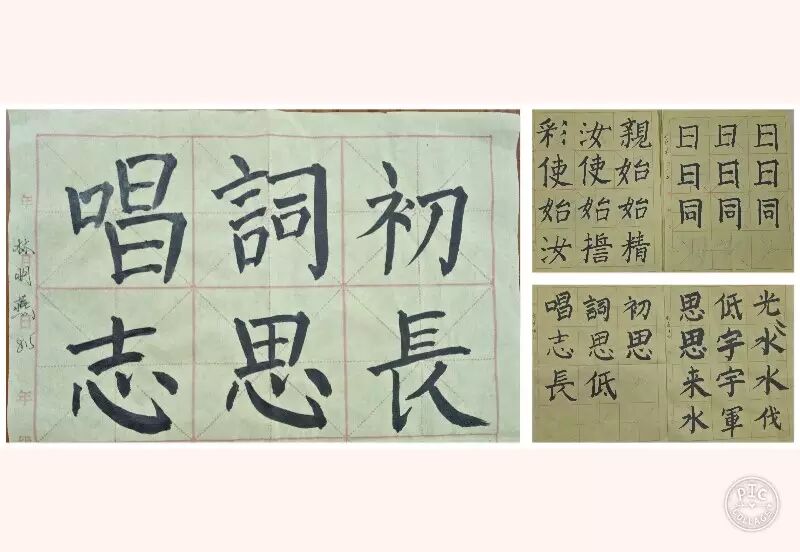 初長
詞思
唱志
林明燕
日日同
日日同
日日同
親始始精
汝使始擔
彩使始汝
光水水伐
低字宇軍
思思来水
初思
詞思低
唱志長
PIC
COLLAGE